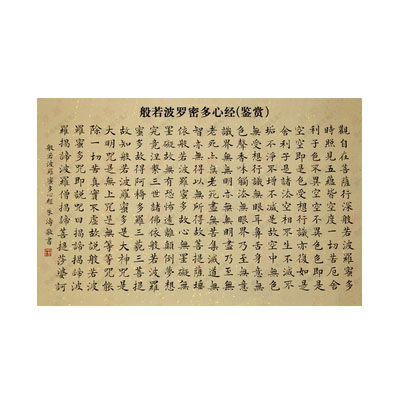 般若波罗密多心经(鉴赏)
觀自在菩薩行深般若波羅蜜多
時照見五蘊皆空度一切苦厄舍
利子色不異空空不異色色即是
空空即是色受想行識亦復如是
舍利子是諸法空相不生不滅不
垢不淨不增不減是故空中無色
無受想行識無眼耳鼻舌身意無
色聲香味觸法無眼界乃至無意
識界無無明亦無無明盡乃至無
老死亦無老死盡無苦集滅道無
智亦無得以無所得故菩提薩埵
依般若波羅蜜多故心無罣礙無
罣礙故無有恐怖遠離顛倒夢想
究竟涅槃三世諸佛依般若波羅
蜜多故得阿耨多羅三藐三菩提
故知般若波羅蜜多是大神咒是
大明咒是無上咒是無等等咒能
除一切苦真實不虛故說般若波
羅蜜多咒即說咒曰揭諦揭諦波
羅揭諦波羅僧揭諦菩提莎婆訶
般若波羅蜜多心經 朱濤敬書